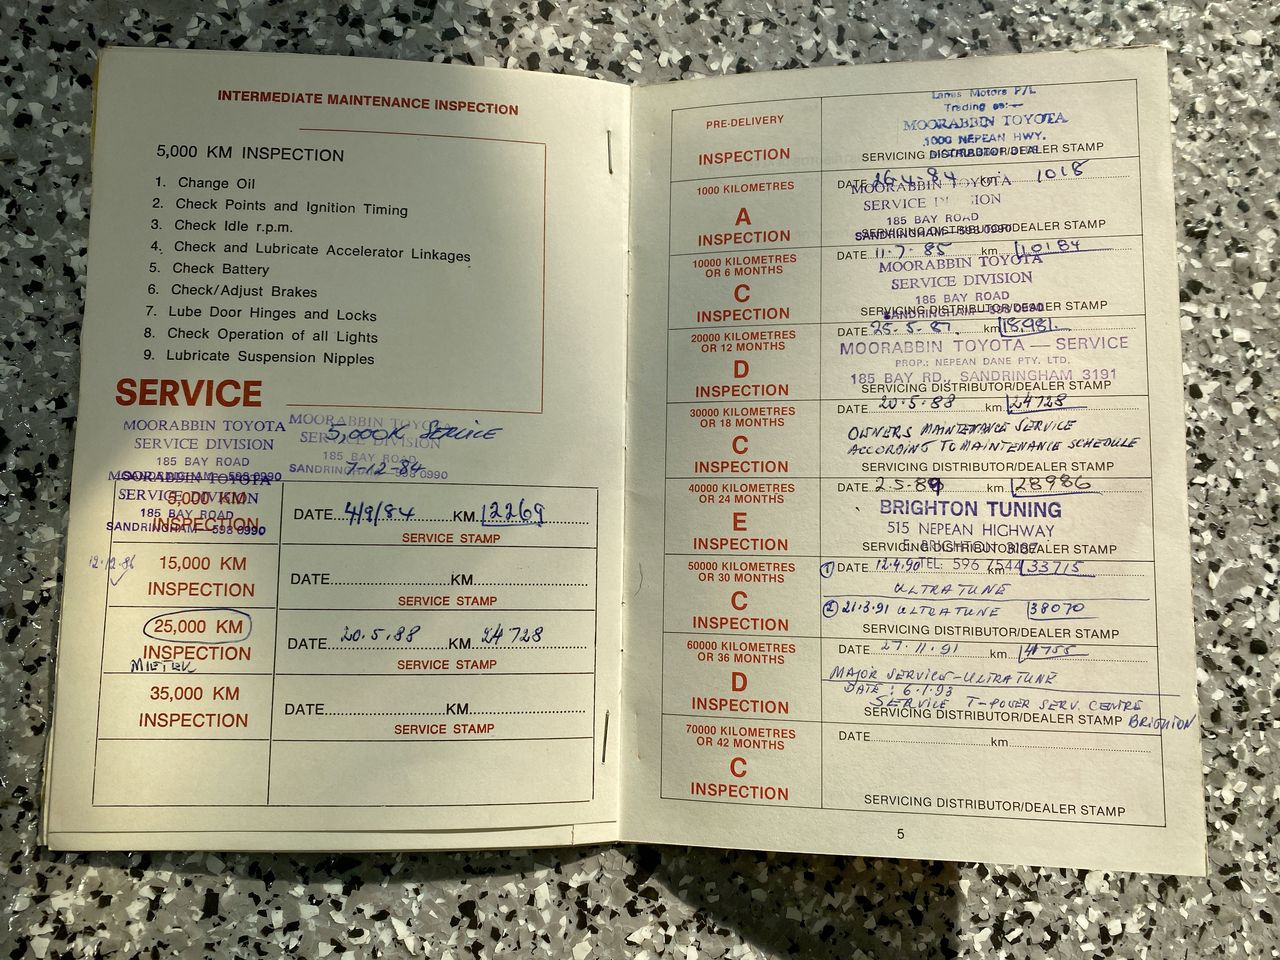 INTERMEDIATE MAINTENANCE INSPECTION
5,000 KM INSPECTION
1. Change Oil
2. Check Points and Ignition Timing
3. Check Idle r.p.m.
4. Check and Lubricate Accelerator Linkages
5. Check Battery
6. Check/Adjust Brakes
7. Lube Door Hinges and Locks
8. Check Operation of all Lights
9. Lubricate Suspension Nipples
SERVICE
MOORABBIN TOYOTA
SERVICE DIVISION
185 BAY ROAD
SANDRINGHAM - 598 0990
MOORABBIN TOYOTA
SERVICE DIVISION
185 BAY ROAD
SANDRINGHAM 598 0990
5,000K SERVICE
7-12-84
MOORABBIN TOYOTA
SERVICE DIVISION
185 BAY ROAD
SANDRINGHAM - 598 0990
5,000 KM
INSPECTION
DATE 4/9/84 KM 2269
SERVICE STAMP
12.12.86
15,000 KM
INSPECTION
DATE KM
SERVICE STAMP
25,000 KM
INSPECTION
MIETEK
DATE 20.5.88 KM 24728
SERVICE STAMP
35,000 KM
INSPECTION
DATE KM
SERVICE STAMP
PRE-DELIVERY
INSPECTION
Lanes Motors P/L
Trading as:-
MOORABBIN TOYOTA
1000 NEPEAN HWY.
SERVICING DISTRIBUTOR/DEALER STAMP
1000 KILOMETRES
A
INSPECTION
DATE 26.4.84 km 1018
MOORABBIN TOYOTA
SERVICE DIVISION
185 BAY ROAD
SANDRINGHAM - 598 0990
SERVICING DISTRIBUTOR/DEALER STAMP
10000 KILOMETRES
OR 6 MONTHS
C
INSPECTION
DATE 11.7.85 km 10184
MOORABBIN TOYOTA
SERVICE DIVISION
185 BAY ROAD
SANDRINGHAM - 598 0990
SERVICING DISTRIBUTOR/DEALER STAMP
20000 KILOMETRES
OR 12 MONTHS
D
INSPECTION
DATE 25.5.87 km 18981
MOORABBIN TOYOTA — SERVICE
PROP.: NEPEAN DANE PTY. LTD.
185 BAY RD., SANDRINGHAM 3191
SERVICING DISTRIBUTOR/DEALER STAMP
30000 KILOMETRES
OR 18 MONTHS
C
INSPECTION
DATE 20.5.88 km 24728
OWNERS MAINTENANCE SERVICE
ACCORDING TO MAINTENANCE SCHEDULE
SERVICING DISTRIBUTOR/DEALER STAMP
40000 KILOMETRES
OR 24 MONTHS
E
INSPECTION
DATE 2.5.89 km 28986
BRIGHTON TUNING
515 NEPEAN HIGHWAY
E. BRIGHTON 3187
SERVICING DISTRIBUTOR/DEALER STAMP
TEL: 596 7544
50000 KILOMETRES
OR 30 MONTHS
C
INSPECTION
1 DATE 12.4.90 km 33715
ULTRATUNE
2 21.3.91 ULTRATUNE 38070
SERVICING DISTRIBUTOR/DEALER STAMP
60000 KILOMETRES
OR 36 MONTHS
D
INSPECTION
DATE 27.11.91 km 41755
MAJOR SERVICE-ULTRATUNE
DATE: 6.1.93
SERVICE T-POWER SERV. CENTRE
SERVICING DISTRIBUTOR/DEALER STAMP BRIGHTON
70000 KILOMETRES
OR 42 MONTHS
C
INSPECTION
DATE km
SERVICING DISTRIBUTOR/DEALER STAMP
5